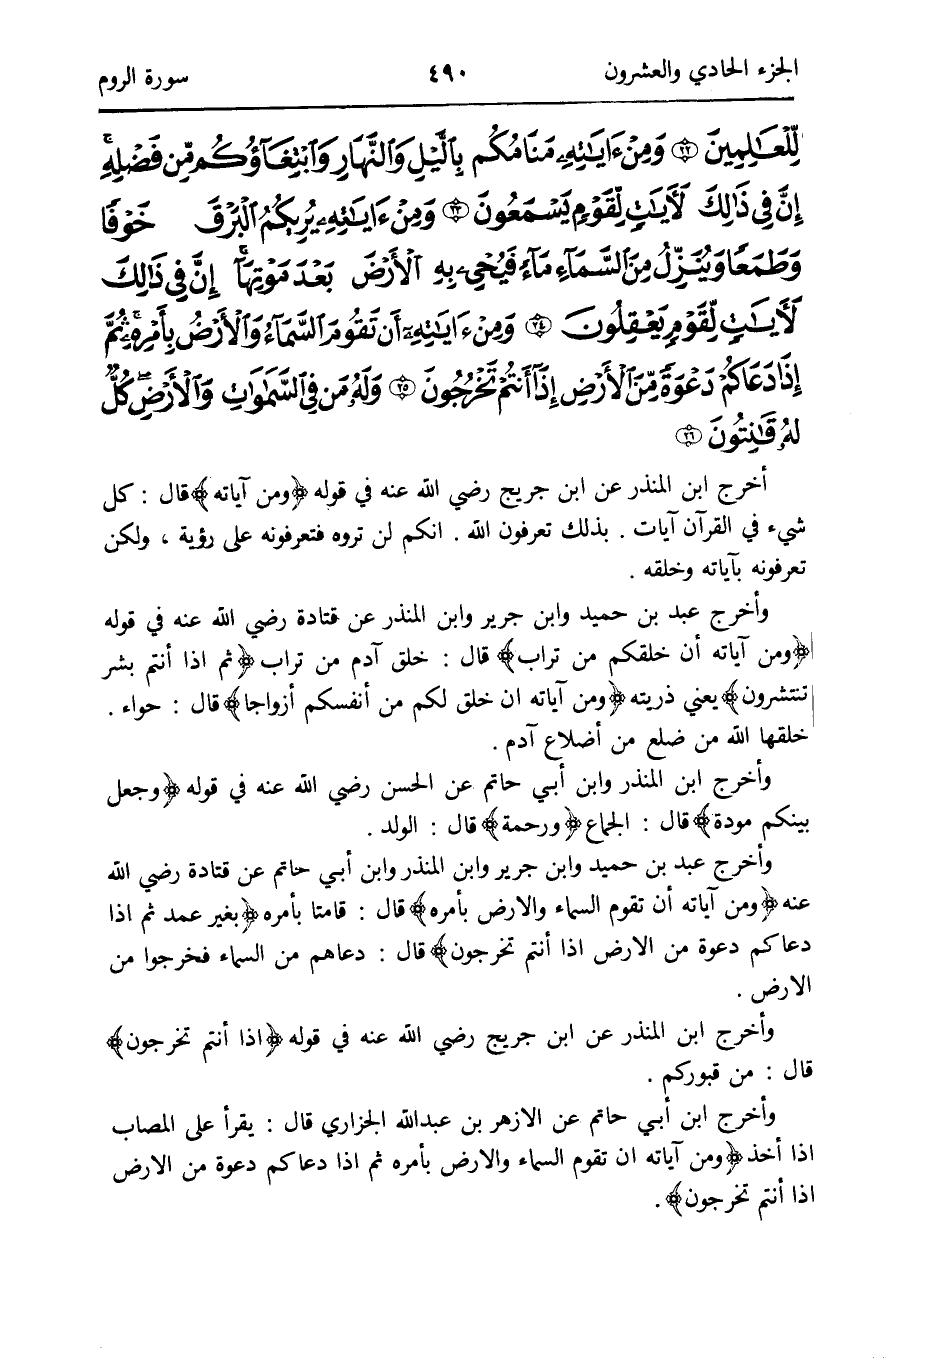 الجزء الحادي والعشرون ٤٩٠ سورة الروم
لِّلْعَـٰلِمِينَ ۝٢٢ وَمِنْ ءَايَـٰتِهِۦ مَنَامُكُم بِٱلَّيْلِ وَٱلنَّهَارِ وَٱبْتِغَآؤُكُم مِّن فَضْلِهِۦٓ ۚ
إِنَّ فِى ذَٰلِكَ لَـَٔايَـٰتٍ لِّقَوْمٍ يَسْمَعُونَ ۝٢٣ وَمِنْ ءَايَـٰتِهِۦ يُرِيكُمُ ٱلْبَرْقَ خَوْفًا
وَطَمَعًا وَيُنَزِّلُ مِنَ ٱلسَّمَآءِ مَآءً فَيُحْىِۦ بِهِ ٱلْأَرْضَ بَعْدَ مَوْتِهَآ ۚ إِنَّ فِى ذَٰلِكَ
لَـَٔايَـٰتٍ لِّقَوْمٍ يَعْقِلُونَ ۝٢٤ وَمِنْ ءَايَـٰتِهِۦٓ أَن تَقُومَ ٱلسَّمَآءُ وَٱلْأَرْضُ بِأَمْرِهِۦ ۚ ثُمَّ
إِذَا دَعَاكُمْ دَعْوَةً مِّنَ ٱلْأَرْضِ إِذَآ أَنتُمْ تَخْرُجُونَ ۝٢٥ وَلَهُۥ مَن فِى ٱلسَّمَـٰوَٰتِ وَٱلْأَرْضِ ۖ كُلٌّ
لَّهُۥ قَـٰنِتُونَ ۝٢٦
أخرج ابن المنذر عن ابن جريج رضي الله عنه في قوله ﴿ومن آياته﴾ قال : كل
شيء في القرآن آيات . بذلك تعرفون الله . انكم لن تروه فتعرفونه على رؤية ، ولكن
تعرفونه بآياته وخلقه .
وأخرج عبد بن حميد وابن جرير وابن المنذر عن قتادة رضي الله عنه في قوله
﴿ومن آياته أن خلقكم من تراب﴾ قال : خلق آدم من تراب ﴿ثم اذا أنتم بشر
تنتشرون﴾ يعني ذريته ﴿ومن آياته ان خلق لكم من أنفسكم أزواجا﴾ قال : حواء .
خلقها الله من ضلع من أضلاع آدم .
وأخرج ابن المنذر وابن أبي حاتم عن الحسن رضي الله عنه في قوله ﴿وجعل
بينكم مودة﴾ قال : الجماع ﴿ورحمة﴾ قال : الولد .
وأخرج عبد بن حميد وابن جرير وابن المنذر وابن أبي حاتم عن قتادة رضي الله
عنه ﴿ومن آياته أن تقوم السماء والارض بأمره﴾ قال : قامتا بأمره ﴿بغير عمد ثم اذا
دعاكم دعوة من الارض اذا أنتم تخرجون﴾ قال : دعاهم من السماء فخرجوا من
الارض .
وأخرج ابن المنذر عن ابن جريج رضي الله عنه في قوله ﴿اذا أنتم تخرجون﴾
قال : من قبوركم .
وأخرج ابن أبي حاتم عن الازهر بن عبدالله الجزاري قال : يقرأ على المصاب
اذا أخذ ﴿ومن آياته ان تقوم السماء والارض بأمره ثم اذا دعاكم دعوة من الارض
اذا أنتم تخرجون﴾ .